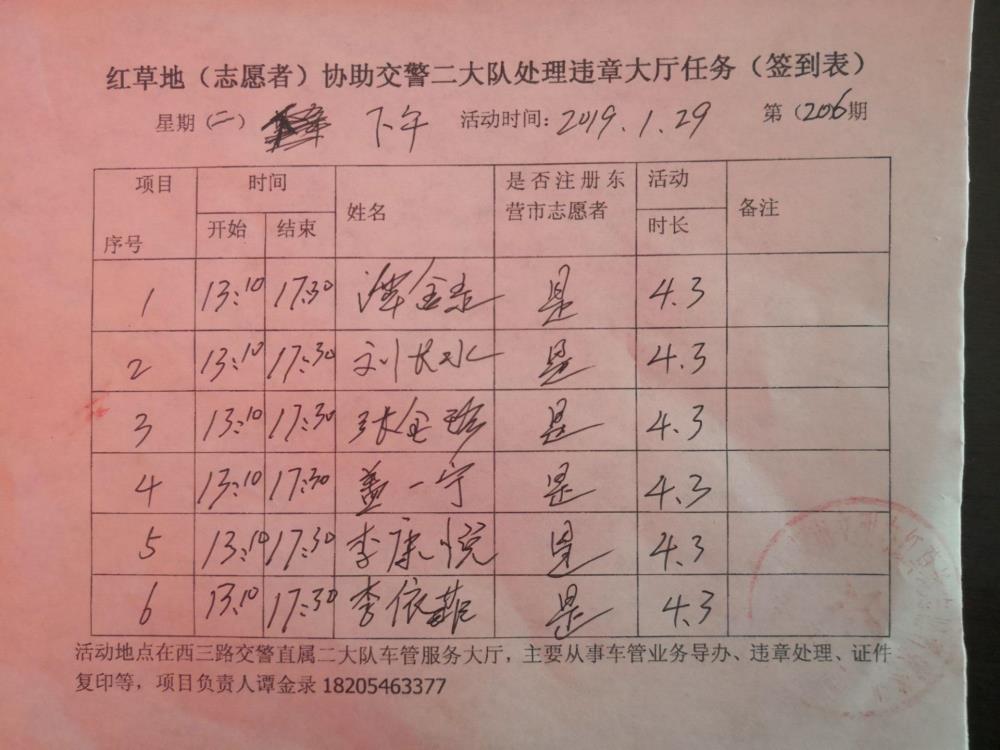 红草地（志愿者）协助交警二大队处理违章大厅任务（签到表）
星期（二） 下午 活动时间：2019.1.29 第（206期
项目 时间 姓名 是否注册东营市志愿者 活动时长 备注
序号 开始 结束
1 13:10 17:30 谭金录 是 4.3
2 13:10 17:30 刘长水 是 4.3
3 13:10 17:30 张金 是 4.3
4 13:10 17:30 盖一宁 是 4.3
5 13:10 17:30 李康悦 是 4.3
6 13:10 17:30 李依菲 是 4.3
活动地点在西三路交警直属二大队车管服务大厅，主要从事车管业务导办、违章处理、证件
复印等，项目负责人谭金录 18205463377